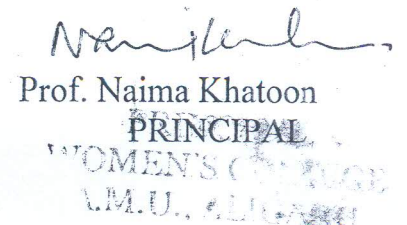 Prof. Naima Khatoon
PRINCIPAL
WOMEN'S COLLEGE
A.M.U., ALIGARH